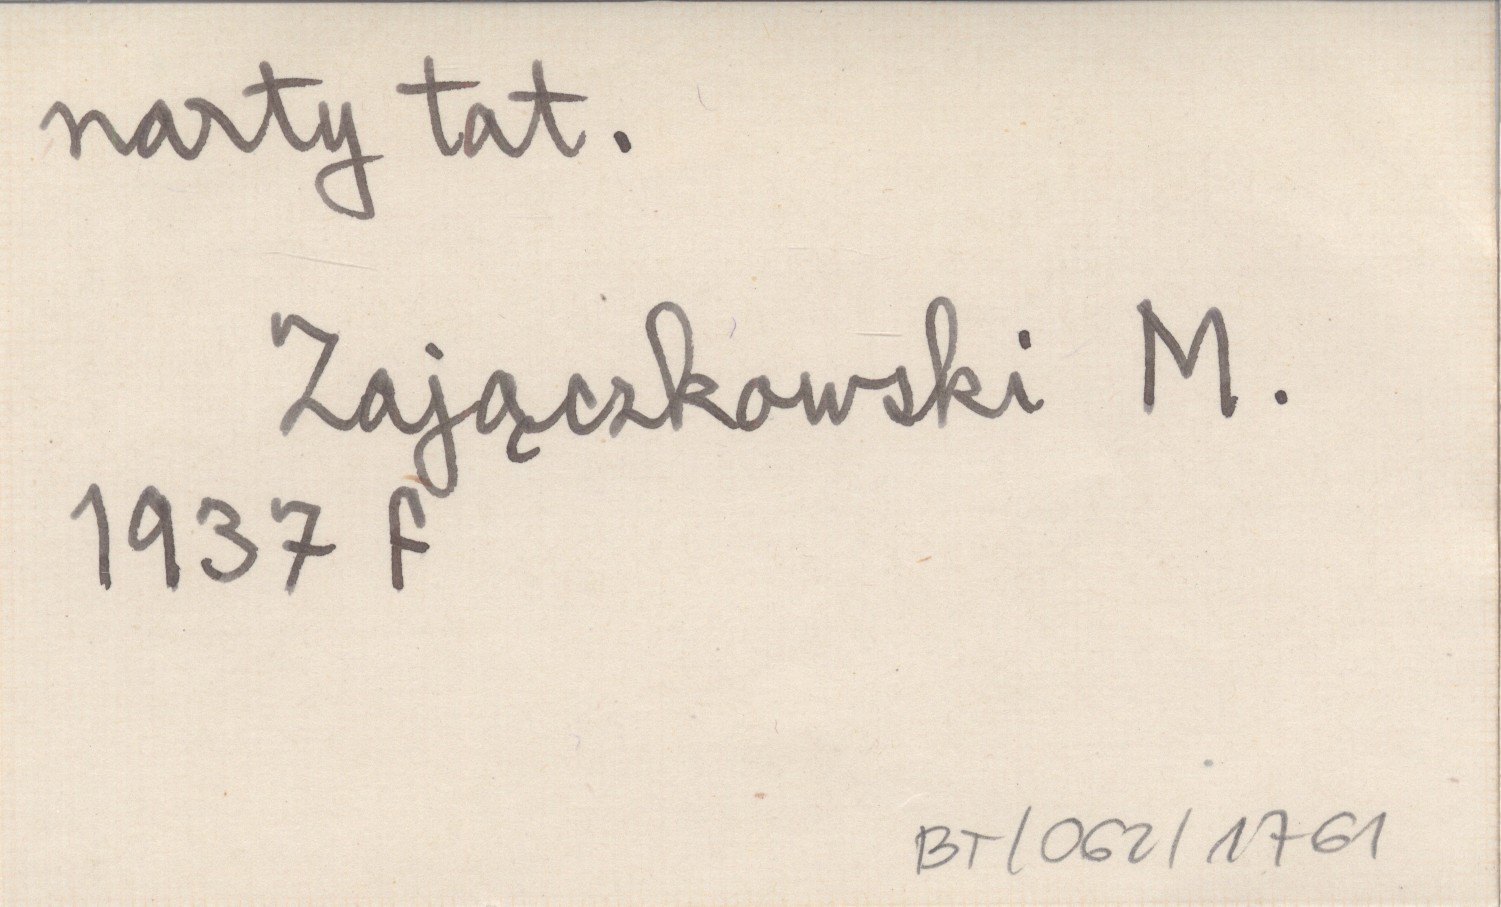 narty tat.
Zajączkowski M.
1937 f
BT/062/1761